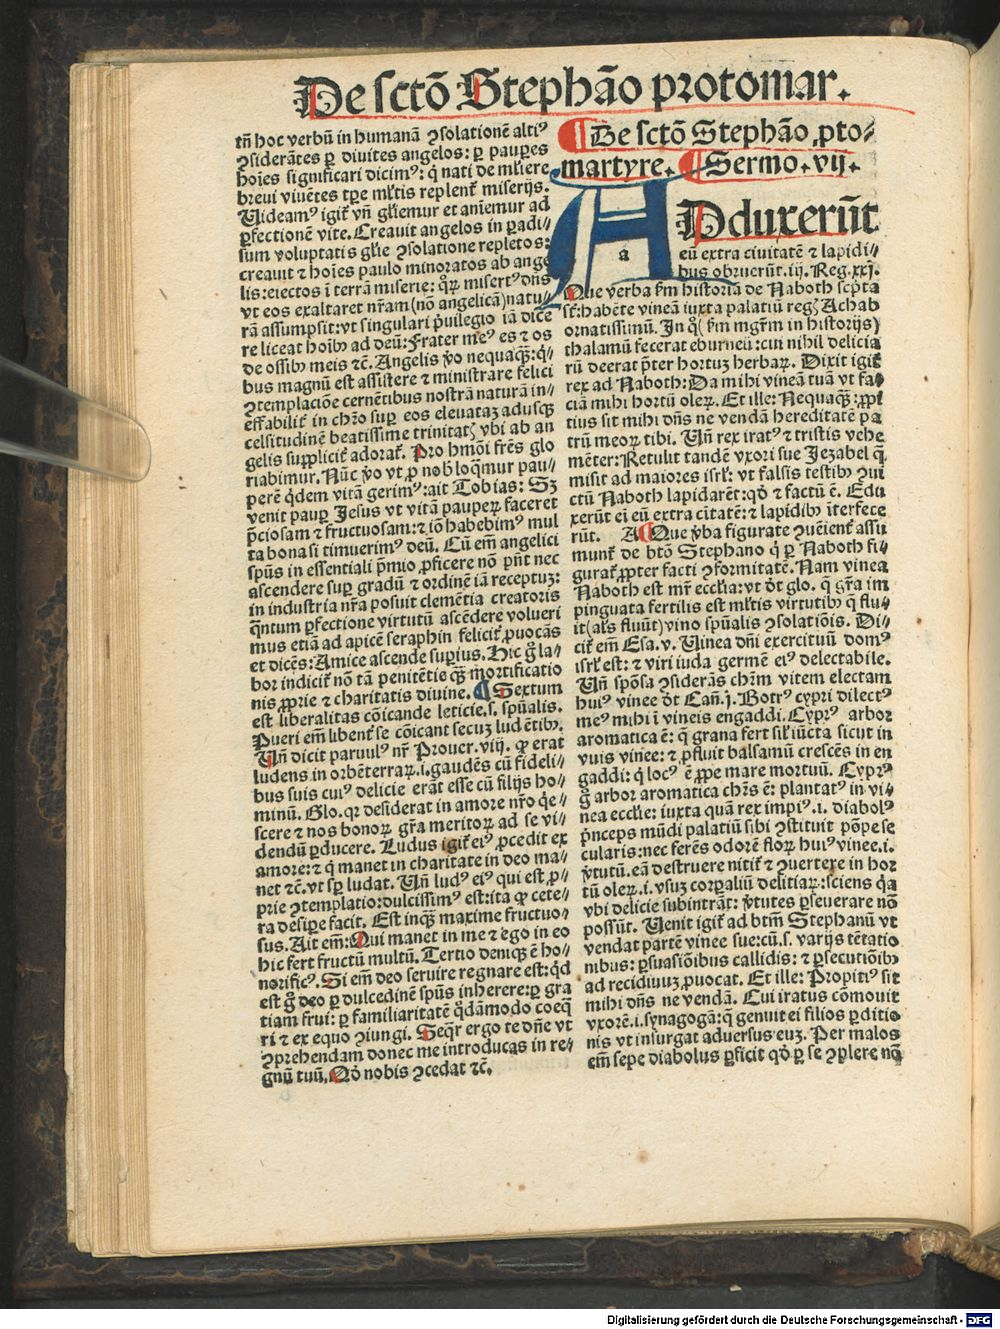 De sctō Stephāo protomar.
tn̄ hoc verbū in humanā ꝯsolationē altiꝰ
ꝯsiderātes ꝑ diuites angelos: ꝑ pauꝑes
hoīes significari dicimꝰ: q̇ nati de ml̓iere
breui viuētes tꝑe ml̓tis replent᷑ miserijs.
Uideamꝰ igit᷑ vn̄ gl̓iemur et aniēmur ad
ꝑfectionē vite. Creauit angelos in ꝑadi⸗
sum voluptatis gl̓ie ꝯsolatione repletos:
creauit ⁊ hoīes paulo minoratos ab ange
lis: eiectos ī terrā miserie: quoꝝ misertꝰ dn̄s
vt eos exaltaret nr̄am (nō angelicā) natu⸗
rā assumpsit: vt singulari p̓uilegio iā dice
re liceat hoībꝰ ad deū: Frater meꝰ es ⁊ os
de ossibꝰ meis ⁊c̄. Angelis v̓o nequaqꝫ: q̇⸗
bus magnū est assistere ⁊ ministrare felici
ꝯtemplaciōe cernētibus nostrā naturā in⸗
effabilit᷑ in chr̄o suꝑ eos eleuataꝫ adusqꝫ
celsitudinē beatissime trinitatꝭ vbi ab an
gelis supplicit᷑ adorat᷑. Pro hmōi frēs glo
riabimur. Nūc v̓o vt ꝓ nobꝭ loq̄mur pau⸗
perē q̇dem vitā gerimꝰ: ait Tobias: Sꝫ
venit pauꝑ Jesus vt vitā pauꝑem faceret
p̄ciosam ⁊ fructuosam: ⁊ iō habebimꝰ mul
ta bona si timuerimꝰ deū. Cū em̄ angelici
spūs in essentiali p̄mio ꝓficere nō pn̄t nec
ascendere suꝑ gradū ⁊ ordinē iā receptuꝫ:
in industria nr̄a posuit clemētia creatoris
q̄ntum ꝑfectione virtutū ascēdere volueri
mus etiā ad apicē seraphin felicit᷑ ꝓuocās
et dicēs: Amice ascende suꝑius. Hic g̊ la⸗
bor indicit᷑ nō tā penitētie qꝫ mortificatio
nis ꝓprie ⁊ charitatis diuine. ¶ Sextum
est liberalitas cōicande leticie. s. spūalis.
Pueri em̄ libent᷑ se cōicant secuꝫ ludētibꝰ.
Un̄ dicit paruulꝰ nr̄ Prouer. viij. ꝙ erat
ludens in orbē terraꝝ. i. gaudēs cū fideli⸗
bus suis cuiꝰ delicie erāt esse cū filijs ho⸗
minū. Glo. qꝛ desiderat in amore nr̄o q̇e⸗
scere ⁊ nos bonoꝝ gr̄a meritoꝝ ad se vi⸗
dendū ꝑducere. Ludus igit᷑ eiꝰ ꝓcedit ex
amore: ⁊ q̇ manet in charitate in deo ma⸗
net ⁊c̄. vt sꝑ ludat. Un̄ ludꝰ eiꝰ qui est ꝓ⸗
prie ꝯtemplatio: dulcissimꝰ est: ita ꝙ cete⸗
ra desiꝑe facit. Est inqꝫ maxime fructuo⸗
sus. Ait em̄: Qui manet in me ⁊ ego in eo
hic fert fructū multū. Tertio deniqꝫ ē ho⸗
norificꝰ. Si em̄ deo seruire regnare est: q̇d
est g̊ deo ꝑ dulcedinē spūs inherere: ꝑ gra
tiam frui: ꝑ familiaritatē q̇dāmodo coeq̄
ri ⁊ ex equo ꝯiungi. Seq̄r ergo te dn̄e vt
ꝯprehendam donec me introducas in re⸗
gnū tuū. Qḋ nobis ꝯcedat ⁊c̄.
¶ De sctō Stephāo ꝓto⸗
martyre. ¶ Sermo. vij.
ADduxerūt
a
eū extra ciuitatē ⁊ lapidi⸗
bus obruerūt. iij. Reg. xxj.
Que verba ẜm historiā de Naboth scp̄ta
st̄: habēte vineā iuxta palatiū regꝭ Achab
ornatissimū. In q̊ (ẜm mgr̄m in historijs)
thalamū fecerat eburneū: cui nihil delicia
rū deerat p̄ter hortuꝫ herbaꝝ. Dixit igit᷑
rex ad Naboth: Da mihi vineā tuā vt fa⸗
ciā mihi hortū oleꝝ. Et ille: Nequaqꝫ: ꝓpi
tius sit mihi dn̄s ne vendā hereditatē pa
trū meoꝝ tibi. Un̄ rex iratꝰ ⁊ tristis vehe
mēter: Retulit tandē vxori sue Jezabel q̄
misit ad maiores isrl̓: vt falsis testibꝰ ꝯui
ctū Naboth lapidarēt: qḋ ⁊ factū ē. Edu
xerūt ei eū extra ciitatē: ⁊ lapidibꝰ īterfece
rūt. A ¶ Que v̓ba figurate ꝯuēient᷑ assu
munt᷑ de btō Stephano q̇ ꝑ Naboth fi⸗
gurat᷑ ꝓpter facti ꝯformitatē. Nam vinea
Naboth est mr̄ eccl̓ia: vt dt̄ glo. q̄ gr̄a im
pinguata fertilis est ml̓tis virtutibꝰ q̄ flu⸗
it (al̓s fluūt) vino spūalis ꝯsolatiōis. Di⸗
cit᷑ em̄ Esa. v. Uinea dn̄i exercituū domꝰ
isrl̓ est: ⁊ viri iuda germē eiꝰ delectabile.
Un̄ spōsa ꝯsiderās chr̄m vitem electam
huiꝰ vinee dt̄ Can̄. j. Botrꝰ cypri dilectꝰ
meꝰ mihi ī vineis engaddi. Cyprꝰ arbor
aromatica ē: q̄ grana fert sil̓ iūcta sicut in
vuis vinee: ⁊ ꝓfluit balsamū crescēs in en
gaddi: q̇ locꝰ ē ꝓpe mare mortuū. Cyprꝰ
g̊ arbor aromatica chr̄s ē: plantatꝰ in vi⸗
nea eccl̓ie: iuxta quā rex impiꝰ. i. diabolꝰ
p̓nceps mūdi palatiū sibi ꝯstituit pōpe se
cularis: nec ferēs odorē floꝝ huiꝰ vinee. i.
v̓tutū. eā destruere nitit᷑ ⁊ ꝯuertere in hor
tū oleꝝ. i. vsuꝫ corꝑaliū delitiaꝝ: sciens q̇a
vbi delicie subintrāt: v̓tutes ꝑseuerare nō
possūt. Uenit igit᷑ ad btm̄ Stephanū vt
vendat partē vinee sue: cū. s. varijs tētatio
nibus: ꝑsuasiōibus callidis: ⁊ ꝑsecutiōibꝰ
ad recidiuuꝫ ꝓuocat. Et ille: Propitiꝰ sit
mihi dn̄s ne vendā. Cui iratus cōmouit
vxorē. i. synagogā: q̄ genuit ei filios ꝑditio
nis vt insurgat aduersus euꝫ. Per malos
em̄ sepe diabolus ꝑficit qḋ ꝑ se ꝯplere neq̇
Digitalisierung gefördert durch die Deutsche Forschungsgemeinschaft - DFG